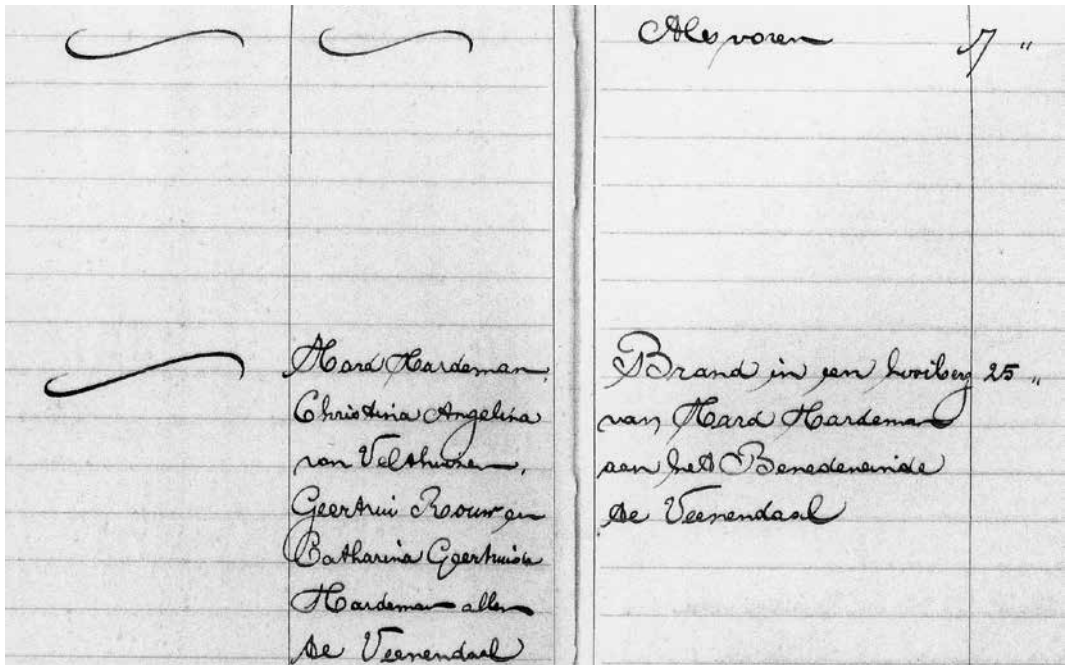 Als voren 7 "
Aard Hardeman,
Christina Angelina
van Velthuizen,
Geertrui Rouw en
Catharina Geertruida
Hardeman allen
te Veenendaal
Brand in een hooiberg 25 "
van Aard Hardeman
aan het Benedeneinde
te Veenendaal